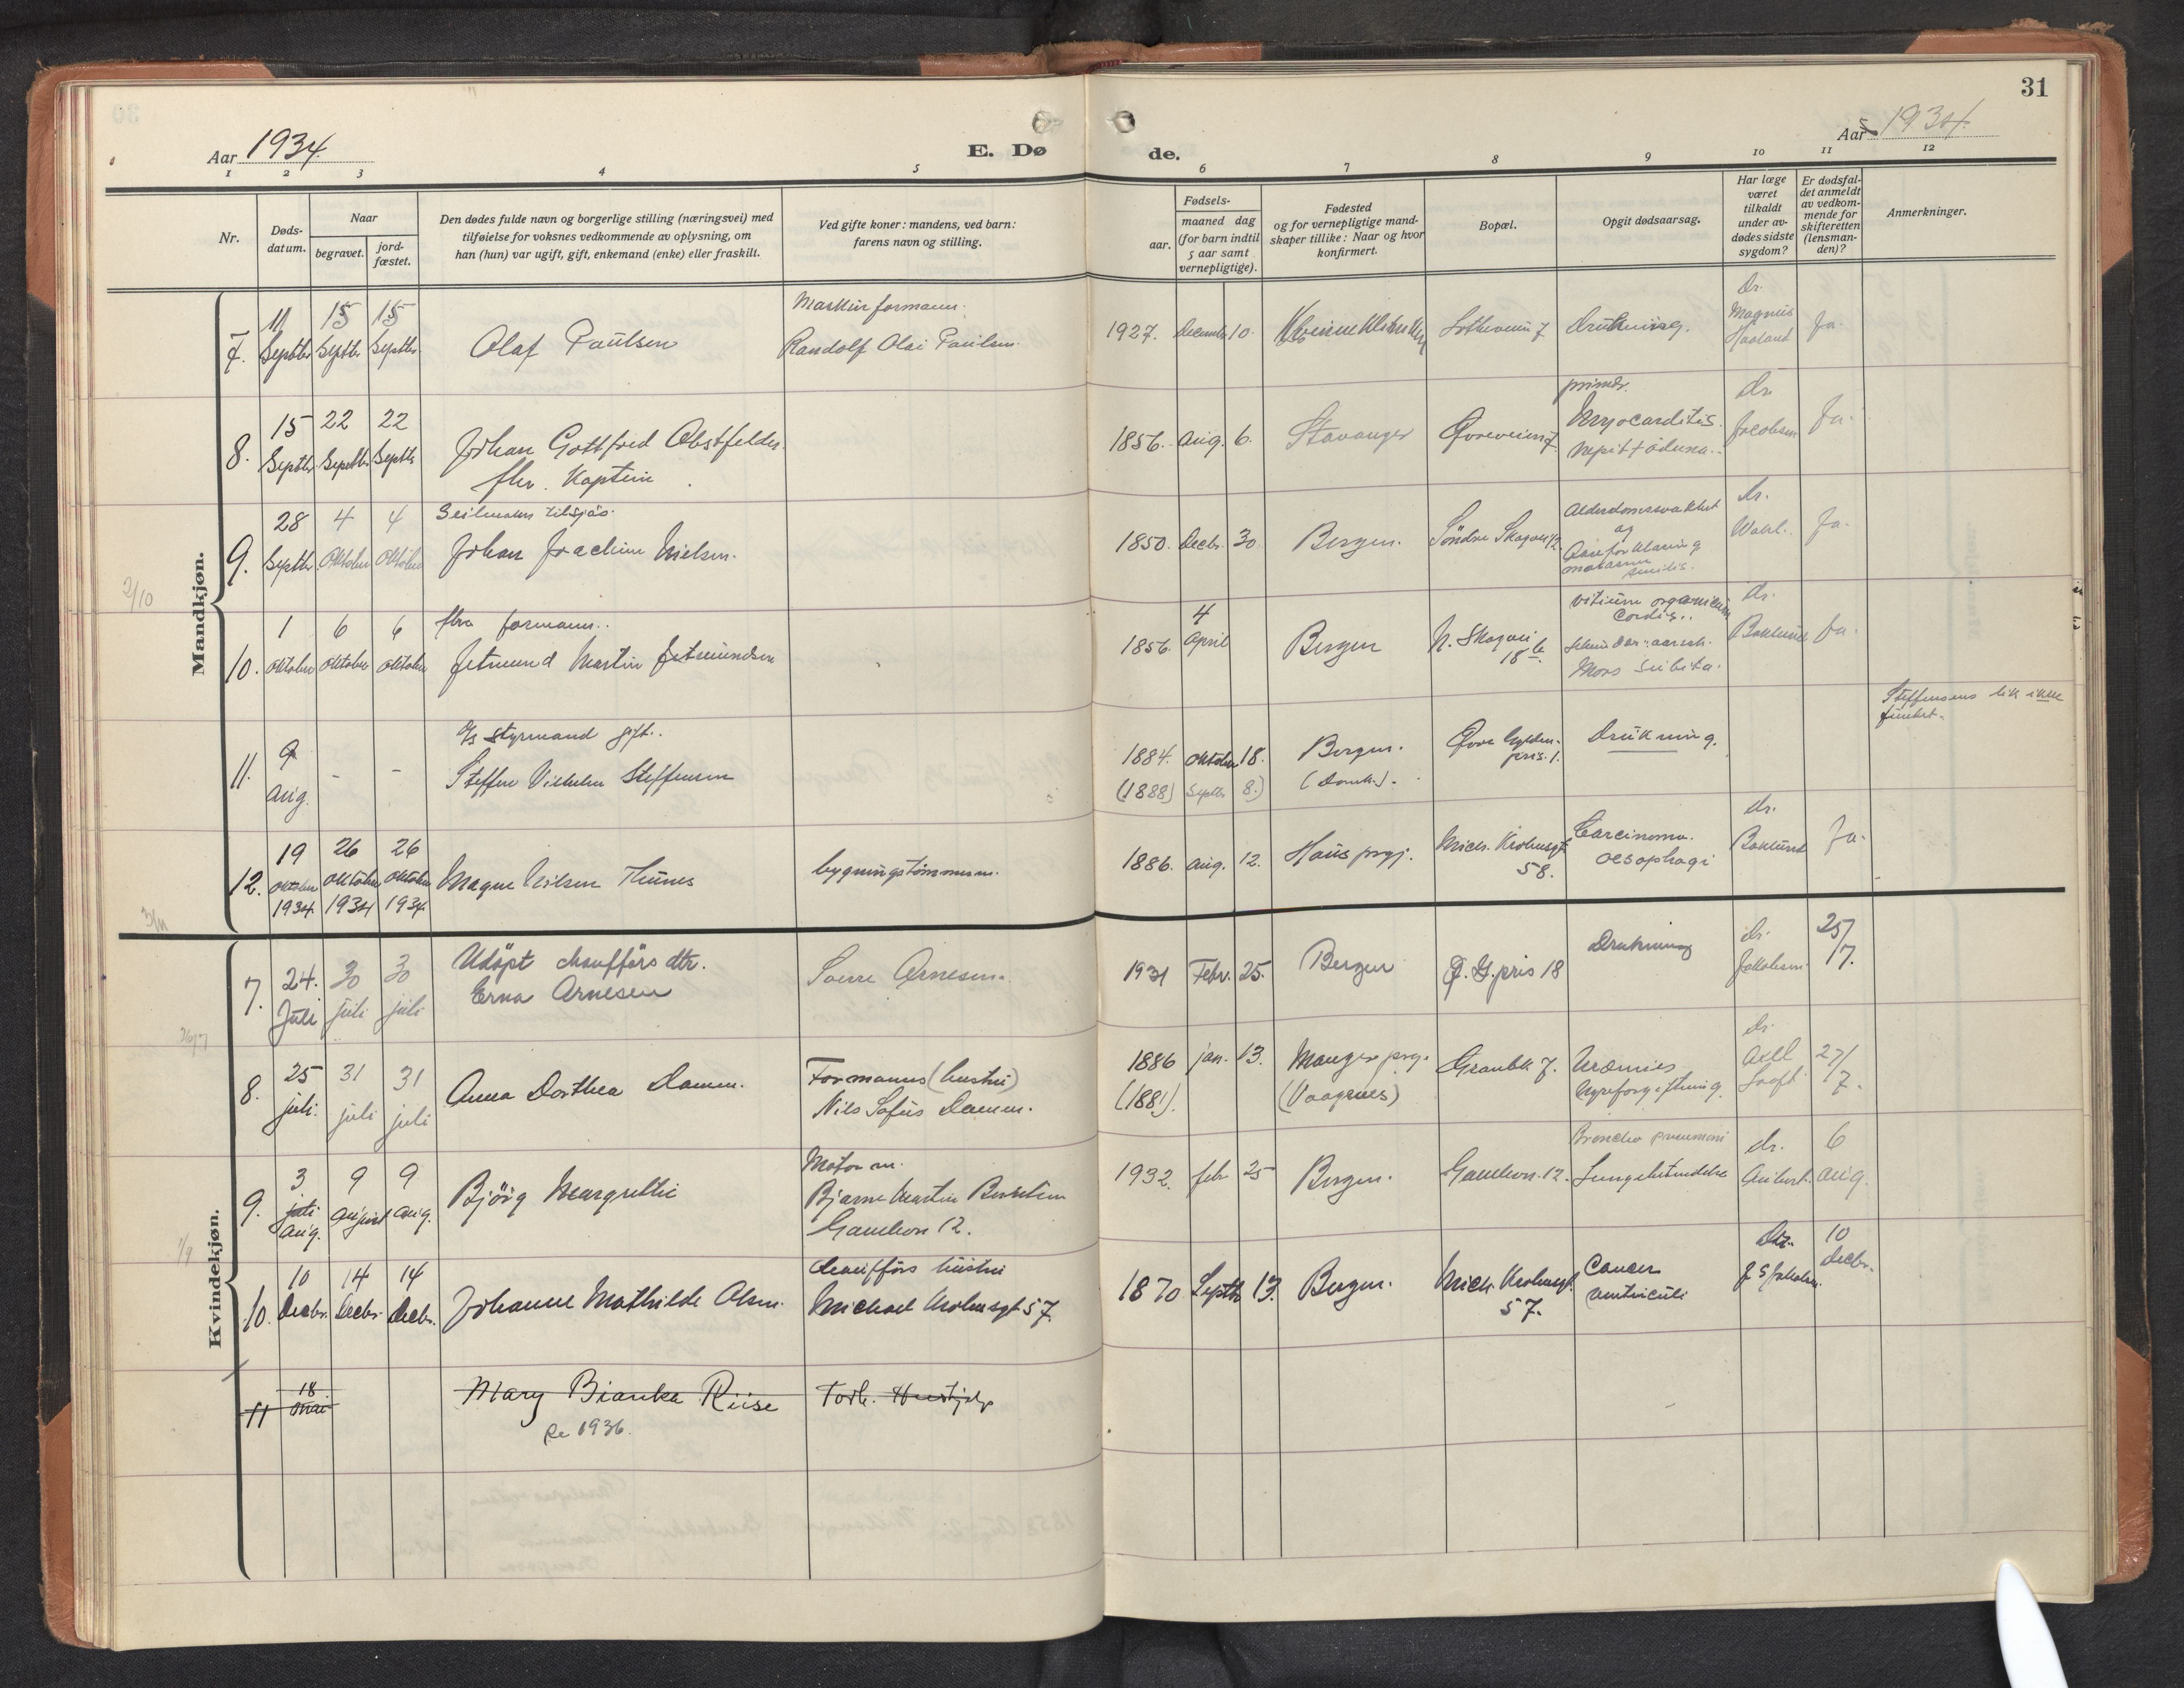 31
Aar 1934
E. Dø
de.
Aar 1934
1 2 3 4 5 6 7 8 9 10 11 12
Nr.
Døds-
datum.
Naar
begravet.
jord-
fæstet.
Den dødes fulde navn og borgerlige stilling (næringsvei) med
tilføielse for voksnes vedkommende av oplysning, om
han (hun) var ugift, gift, enkemand (enke) eller fraskilt.
Ved gifte koner: mandens, ved barn:
farens navn og stilling.
Fødsels-
aar.
maaned dag
(for barn indtil
5 aar samt
vernepligtige).
Fødested
og for vernepligtige mand-
skaper tillike: Naar og hvor
konfirmert.
Bopæl.
Opgit dødsaarsag.
Har læge
været
tilkaldt
under av-
dødes sidste
sygdom?
Er dødsfal-
det anmeldt
av vedkom-
mende for
skifteretten
(lensman-
den)?
Anmerkninger.
Mandkjøn.
7. 11 Septbr 15 Septbr 15 Septbr
Olaf Paulsen
Maskinformann.
Randolf Olai Paulsen.
1927. December 10.
Drukning.
Dr.
Magnus
Haaland
Ja.
8. 15 Septbr 22 Septbr 22 Septbr
Johan Gottfred Obstfelder
fhv. Kaptein
1856. Aug. 6.
Stavanger
primær.
Myocarditis.
dr.
Jacobsen
Ja.
2/10
9. 28 Septbr 4 Oktober 4 Oktober
Seilmaker tilsjøs.
Johan Joachim Nielsen.
1850. Decbr. 30
Bergen.
Søndre Skogvei 12
Alderdomssvakhet
og
Aareforkalkning
marasmus
senilis.
dr.
Ja.
10. 1 oktober 6 oktober 6 oktober
fhv formann.
Jetmund Martin Jetmundsen
1856. 4 April
Bergen
N. Skogvei
18 b
vitium organicum
Cordis.
Mors subita.
dr.
Baklund
Ja.
11. 9 Aug. - -
D/s styrmand gift.
Steffen Vilhelm Steffensen
1884. oktober 18.
(1888) Septbr 8.)
Bergen.
(Domk.).
Øvre Gylden-
pris. 1.
Drukning.
Steffensens lik ikke
funnet.
12. 19 oktober 1934 26 oktober 1934 26 oktober 1934
Magne Nilsen Tunes
bygningstømmerm.
1886. Aug. 12.
Haus prgj.
Mich. Krohnsgt
58.
Carcinoma.
oesophagi
dr.
Baklund
Ja.
3/11
Kvindekjøn.
7. 24. Juli 30 juli 30 juli
Adopt chaufførs dtr.
Erna Arnesen
Sverre Arnesen.
1931 Febr. 25.
Bergen
Ø. G.pris 18
Drukning
dr.
Jakobsen
25/
7.
26/7
8. 25 juli. 31 juli 31 juli
Anna Dorthea Damm.
Formanns (hustru)
Nils Sofus Damm.
1886 jan. 13.
(1881).
Manger prgj.
(Vaagenes)
Granbk 7.
Uræmies
Nyreforgiftning.
dr.
Axel
27/
7.
9. 3 juli aug. 9 August 9 Aug.
Bjørg Margrethe
Motorm.
Bjarne Martin
Gamleon 12.
1932. febr 25
Bergen.
Gamleon. 12.
Broncho pneumoni
Lungebetendelse
dr.
6
aug.
1/9
10. 10 Decbr. 14 Decbr 14 Decbr.
Johanne Mathilde Olsen.
chaufførs hustru
Michael Krohnsgt 57
1870 Septbr 13.
Bergen.
Mich. Krohnsgt.
57.
Cancer
ventriculi
Dr.
J S Jakobsen.
10
Decbr.
11 18 mai
Mary Bianka Riise
Torb. Hustjelp
Se 1936.